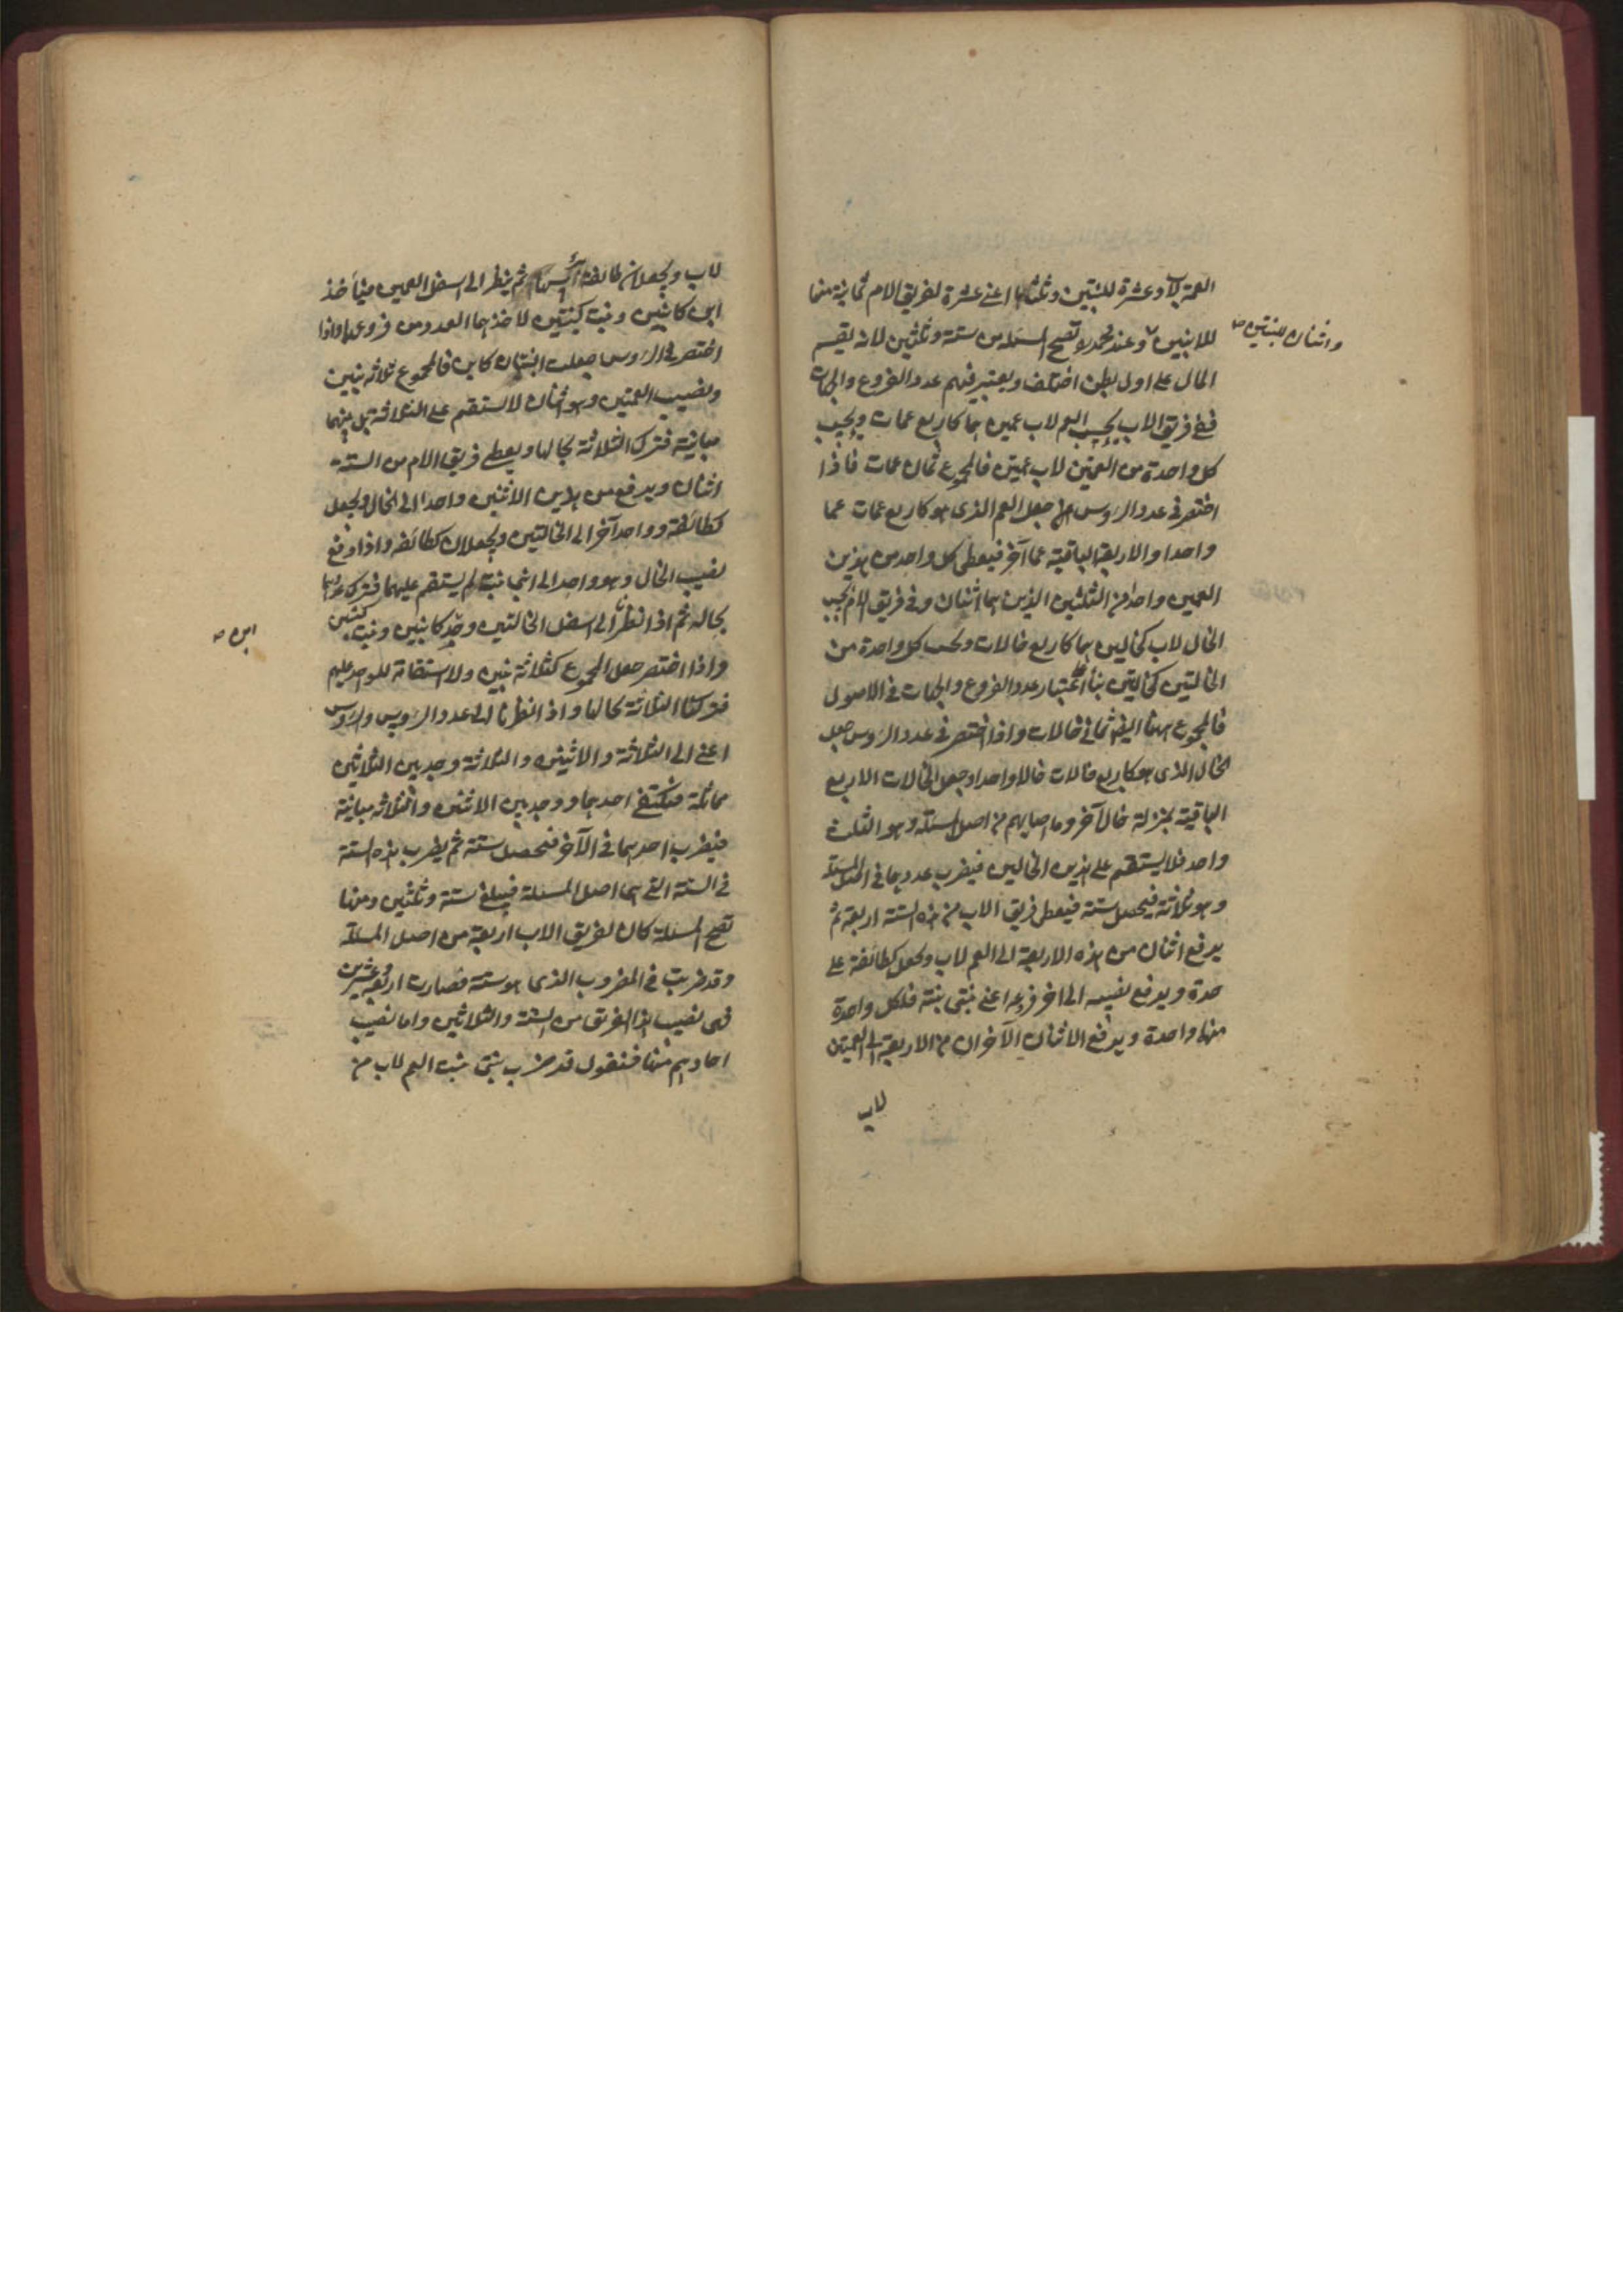 العمة لاب وعشرة للبنتين وثلثها اعنى عشرة لفريق الام ثمانية منها
واثنان للبنتين صح
للابنين وعند محمد تصح المسئلة من ستة وثلثين لانه يقسم
المال على اول بطن اختلف ويعتبر فيهم عدد الفروع والجهات
ففى فريق الاب يحسب العم لاب عمين هما كاربع عمات ويحسب
كل واحدة من العمتين لاب عمتين فالمجموع ثمان عمات فاذا
اختصر فى عدد الرؤس جعل العم الذى هو كاربع عمات عما
واحدا والاربعة الباقية عما آخر فيعطى كل واحد من هذين
العمين واحدا من الثلثين الذين هما اثنان وفى فريق الام يحسب
الخال لاب كخالين هما كاربع خالات وتحسب كل واحدة من
الخالتين كخالتين بناء على اعتبار عدد الفروع والجهات فى الاصول
فالمجموع ههنا ايضا ثمانى خالات واذا اختصر فى عدد الرؤس جعل
الخال الذى هو كاربع خالات خالا واحدا وجعل الخالات الاربع
الباقية بمنزلة خال آخر وما اصابهم من اصل المسئلة وهو الثلث
واحد فلا يستقيم على هذين الخالين فيضرب عددهما فى اصل المسئلة
وهو ثلاثة فيحصل ستة فيعطى فريق الاب من هذه الستة اربعة ثم
يدفع اثنان من هذه الاربعة الى العم لاب ويجعل كطائفة على
حدة ويدفع نصيبه الى اخر فروعه اعنى بنتى بنته فلكل واحدة
منهما واحدة ويدفع الاثنان الآخران من الاربعة الى العمتين
لاب
لاب ويجعلان طائفة ثم ينظر الى اسفل العمين فيأخذ
ابن كابنين وبنت كبنتين لاخذهما العدد من فروعهما واذا
اختصر فى الرؤس جعلت البنتان كابن فالمجموع ثلاثة بنين
ونصيب العمتين وهو اثنان لا يستقيم على الثلاثة بل بينهما
مباينة فترك الثلاثة بحالها ويعطى فريق الام من الستة
اثنان ويدفع من هذين الاثنين واحدا الى الخال ويجعل
كطائفة وواحد آخر الى الخالتين ويجعلان كطائفة واذا دفع
نصيب الخال وهو واحد الى ابنى بنته لم يستقم عليهما فترك عددهما
بحاله ثم اذا نظر الى اسفل الخالتين وجد كابنين وبنت كبنتين
ابن صح
واذا اختصر جعل المجموع كثلاثة بنين ولا استقامة للواحد عليهم
فتركنا الثلاثة بحالها واذا نظرنا الى عدد الرؤس والرؤس
اعنى الى الثلاثة والاثنين والثلاثة وجد بين الثلاثين
مماثلة فيكتفى احدهما ووجد بين الاثنين والثلاثة مباينة
فيضرب احدهما فى الآخر فيحصل ستة ثم يضرب هذه الستة
فى الستة التى هى اصل المسئلة فيبلغ ستة وثلثين ومنها
تصح المسئلة كان لفريق الاب اربعة من اصل المسئلة
وقد ضربت فى المضروب الذى هو ستة فصارت اربعة وعشرين
فهى نصيب هذا الفريق من الستة والثلاثين واما نصيب
احادهم منها فنقول قد ضرب بنتى بنت العم لاب من